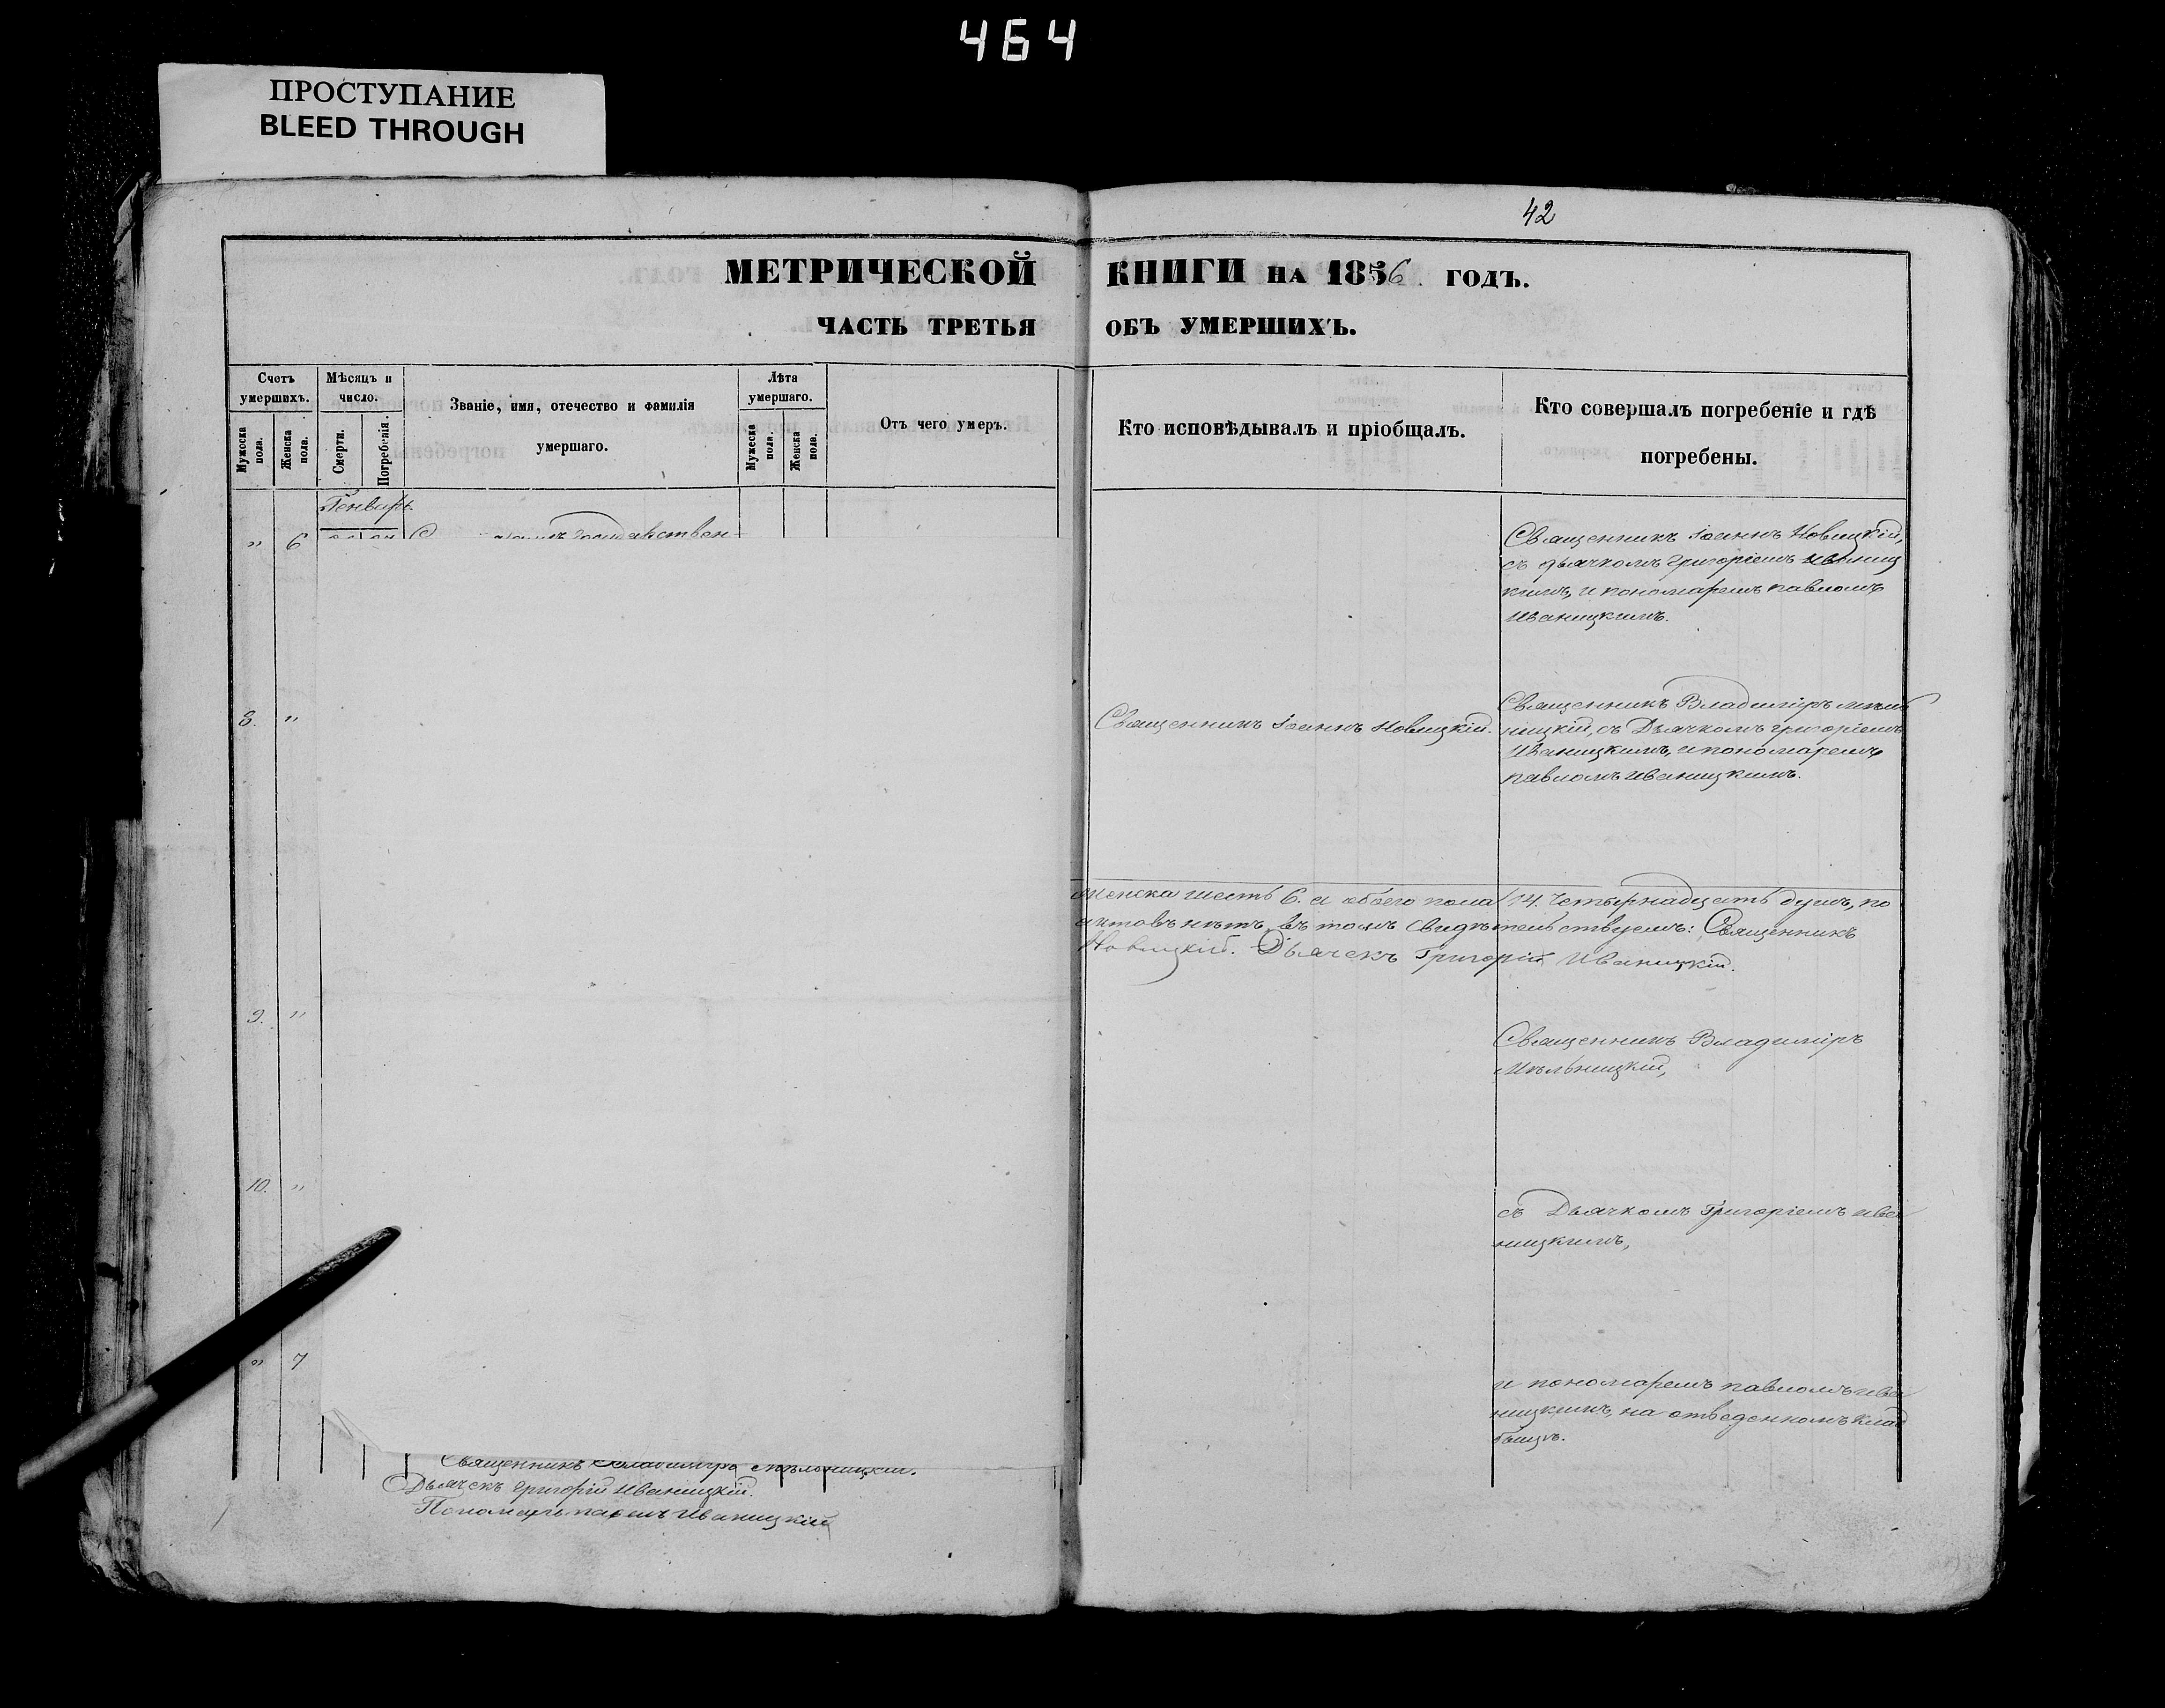 464
ПРОСТУПАНИЕ
BLEED THROUGH
42
МЕТРИЧЕСКОЙ КНИГИ НА 1856 ГОДЪ.
ЧАСТЬ ТРЕТЬЯ ОБЪ УМЕРШИХЪ.
Счетъ умершихъ.
Мужеска пола.
Женска пола.
Мѣсяцъ и число.
Смерти.
Погребенія.
Званіе, имя, отечество и фамилія умершаго.
Лѣта умершаго.
Мужеска пола.
Женска пола.
Отъ чего умеръ.
Кто исповѣдывалъ и пріобщалъ.
Кто совершалъ погребеніе и гдѣ погребены.
Генварь
" 6
Священникъ Іоаннъ Новицкій,
съ дьячкомъ Григоріемъ Иваниц
кимъ, и пономаремъ павломъ
Иваницкимъ.
8. "
Священникъ Іоаннъ Новицкій.
Священникъ Владиміръ мѣль
ницкій, съ Дьячкомъ григоріемъ
Иваницкимъ, и пономаремъ
павломъ иваницкимъ.
женска шесть 6. а обоего пола 14. четырнадцать душъ, по
актовъ нѣтъ, въ томъ свидѣтельствуемъ: Священникъ
Новицкій. Дьячекъ Григорій Иваницкій.
9. "
Священникъ Владиміръ
Мѣльницкій,
10. "
съ Дьячкомъ Григоріемъ ива
ницкимъ,
" 7
и пономаремъ павломъ ива
ницкимъ, на отведенномъ клад
бищѣ.
Священникъ Владиміръ Мѣльницкій.
Дьячекъ григорій Иваницкій.
Пономарь павелъ Иваницкій